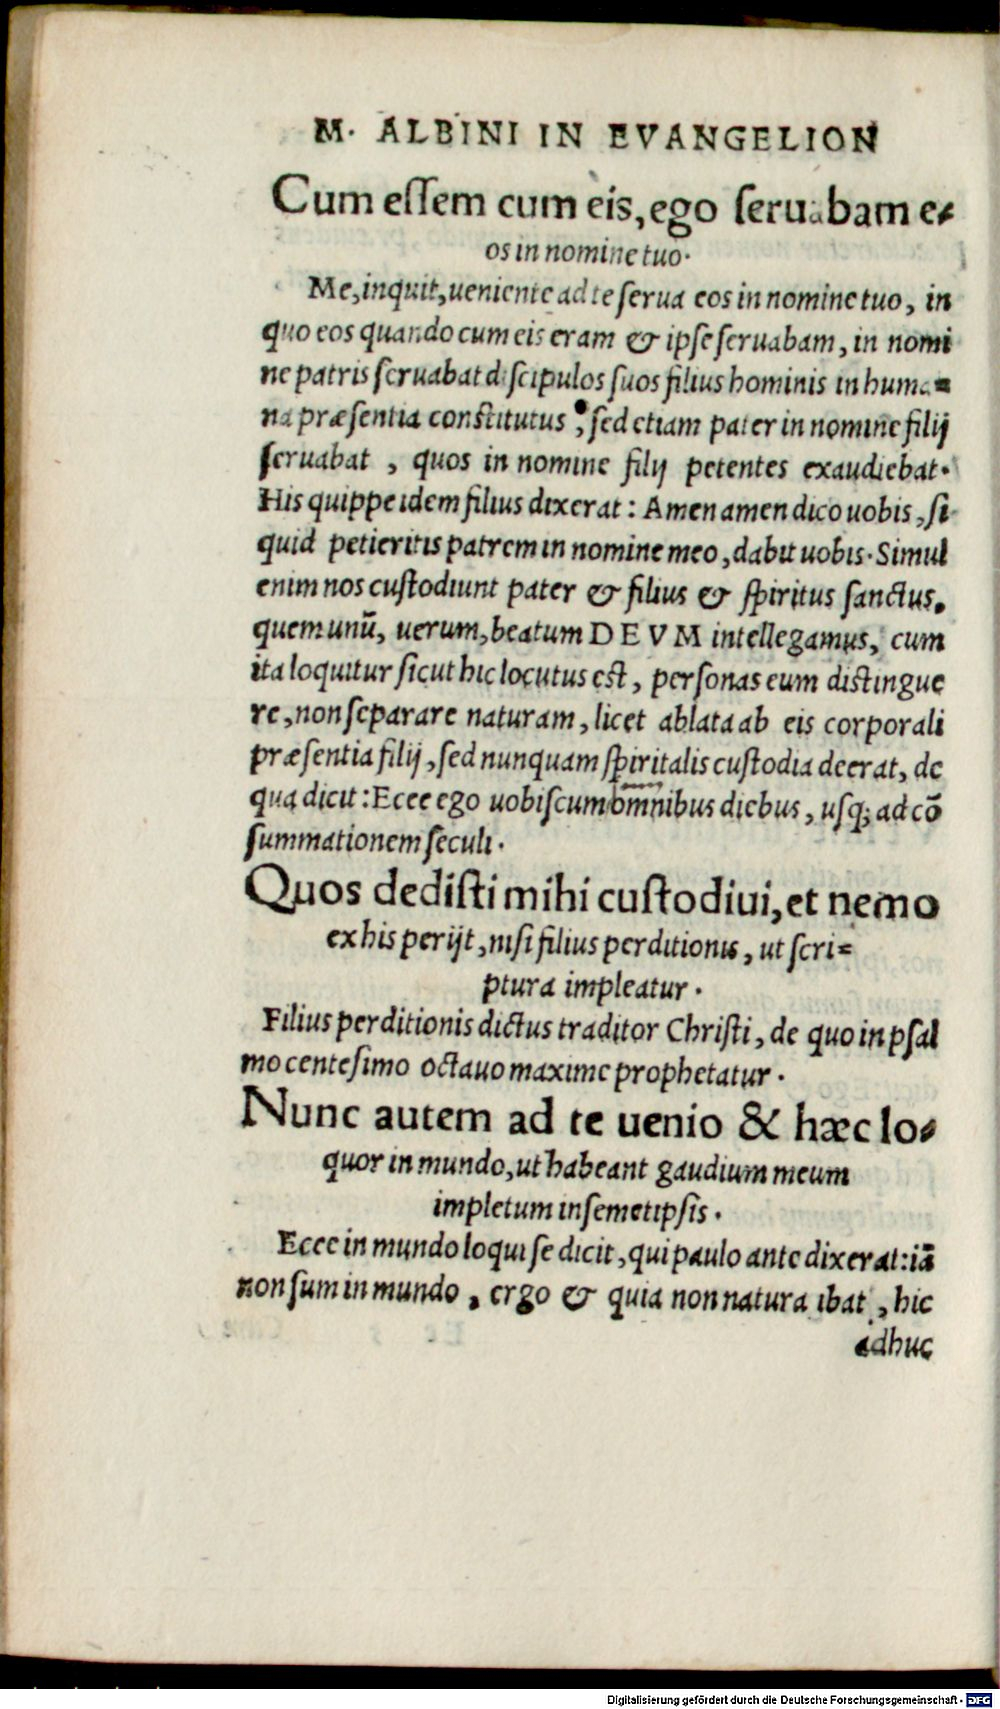 M. ALBINI IN EVANGELION
Cum eſſem cum eis, ego ſeruabam e⸗
os in nomine tuo.
Me, inquit, ueniente ad te ſerua eos in nomine tuo, in
quo eos quando cum eis eram & ipſe ſeruabam, in nomi
ne patris ſeruabat diſcipulos ſuos filius hominis in huma⸗
na præſentia conſtitutus, ſed etiam pater in nomine filij
ſeruabat, quos in nomine filij petentes exaudiebat.
His quippe idem filius dixerat: Amen amen dico uobis, ſi
quid petieritis patrem in nomine meo, dabit uobis. Simul
enim nos cuſtodiunt pater & filius & ſpiritus ſanctus.
quem unū, uerum, beatum DEVM intellegamus, cum
ita loquitur ſicut hic locutus eſt, perſonas eum diſtingue
re, non ſeparare naturam, licet ablata ab eis corporali
præſentia filij, ſed nunquam ſpiritalis cuſtodia deerat, de
qua dicit: Ecce ego uobiſcum omnibus diebus, uſq; ad cō
ſummationem ſeculi.
Quos dediſti mihi cuſtodiui, et nemo
ex his perijt, niſi filius perditionis, ut ſcri⸗
ptura impleatur.
Filius perditionis dictus traditor Chriſti, de quo in pſal
mo centeſimo octauo maxime prophetatur.
Nunc autem ad te uenio & hæc lo⸗
quor in mundo, ut habeant gaudium meum
impletum in ſemetipſis.
Ecce in mundo loqui ſe dicit, qui paulo ante dixerat: iā
non ſum in mundo, ergo & quia non natura ibat, hic
adhuc
Digitalisierung gefördert durch die Deutsche Forschungsgemeinschaft - DFG